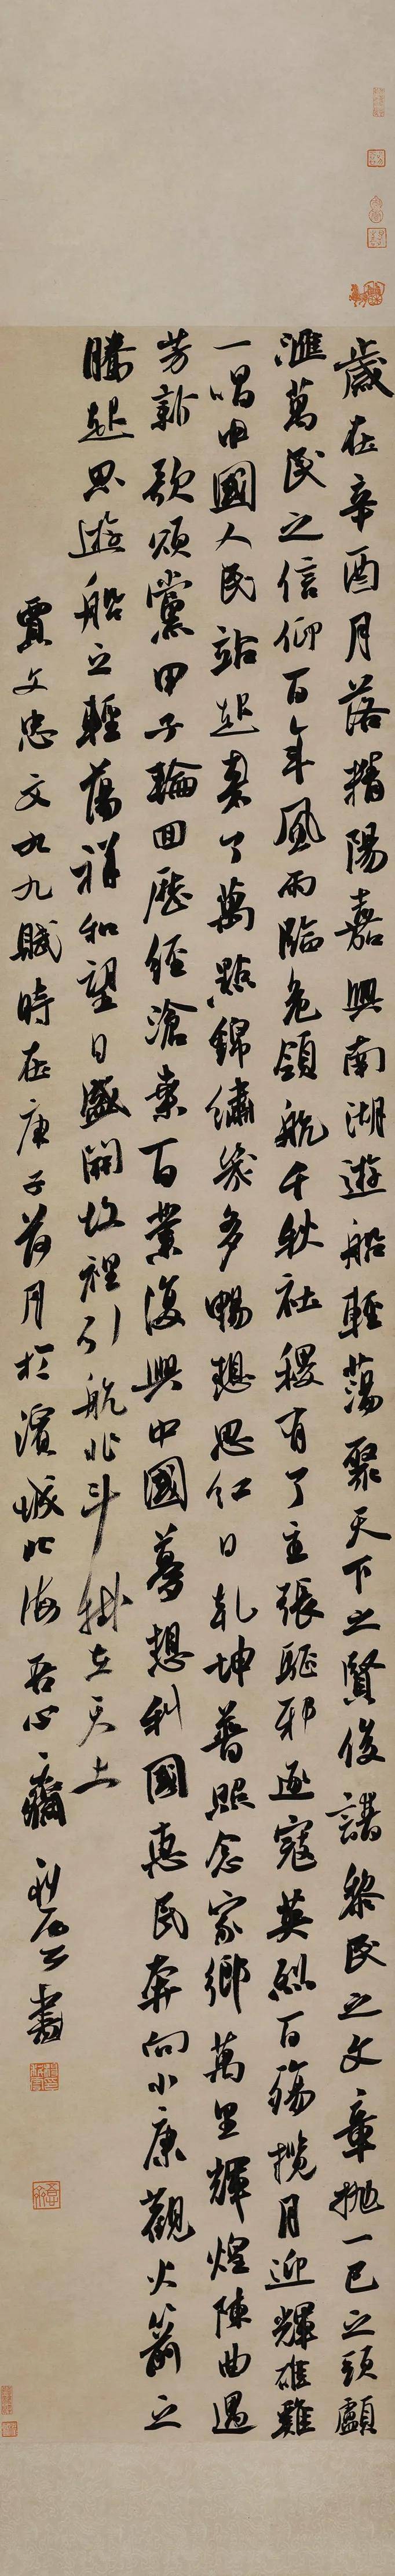 歲在辛酉月落楷陽嘉興南湖遊船輕蕩聚天下之賢俊譜黎民之文章拋一己之頭顱
滙萬民之信仰百年風雨臨危領航千秋社稷有了主張驅邪逐寇英烈百殤攬月迎輝雄雞
一唱中國人民站起來了萬點錦繡幾多暢想思紅日乾坤普照念家鄉萬里輝煌陳曲遏
芳新歌頌黨甲子輪回歷經滄桑百業復興中國夢想利國惠民奔向小康觀火箭之
騰起思遊船之輕蕩祥和望日盛開故裡引航北斗掛在天上
賈文忠文九九賦時在庚子荷月於濱城北海吾心齋 書